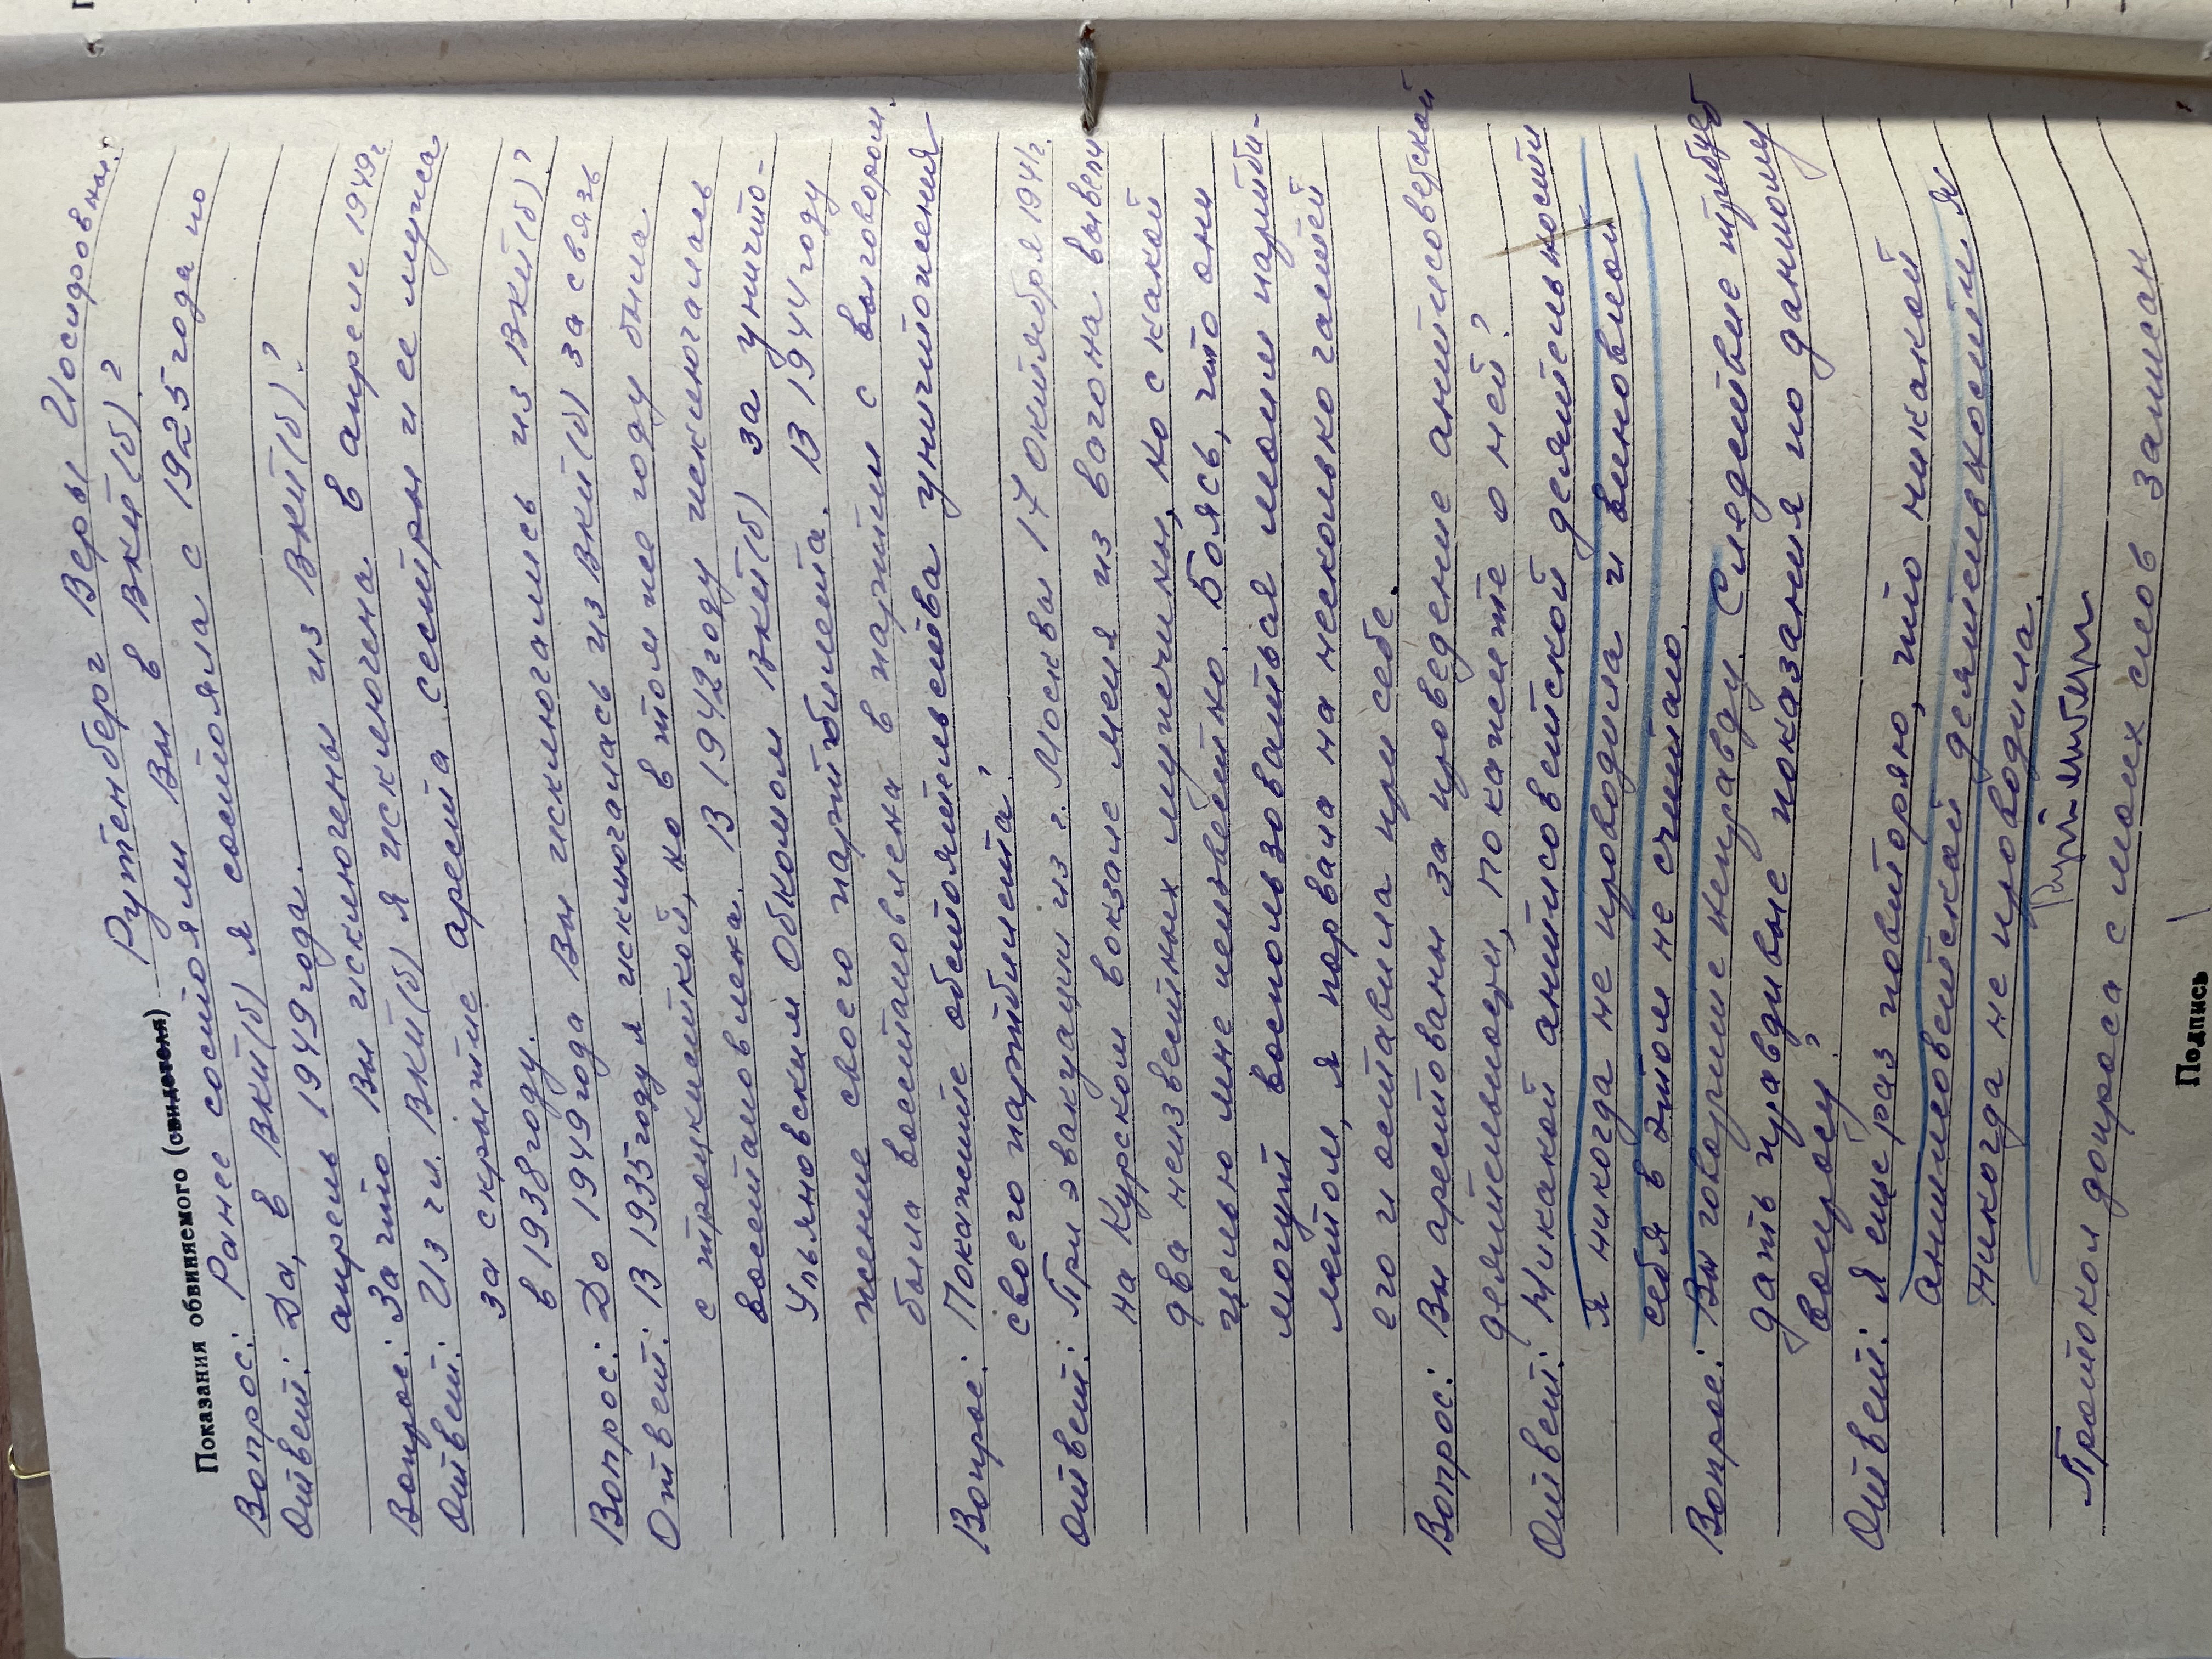 Показания обвиняемого (свидетеля) Рутенберг Веры Исидоровны.
Вопрос: Ранее состояли Вы в ВКП(б)?
Ответ: Да, в ВКП(б) я состояла с 1925 года по
апрель 1949 года.
Вопрос: За что Вы исключены из ВКП(б)?
Ответ: Из чл. ВКП(б) я исключена в апреле 1949 г
за скрытие ареста сестры и ее мужа
в 1938 году.
Вопрос: До 1949 года Вы исключались из ВКП(б)?
Ответ: В 1935 году я исключалась из ВКП(б) за связь
с троцкисткой, но в том же году была
восстановлена. В 1942 году исключалась
Ульяновским Обкомом ВКП(б) за уничто-
жение своего партбилета. В 1944 году
была восстановлена в партии с выговором.
Вопрос: Покажите обстоятельства уничтожения
своего партбилета?
Ответ: При эвакуации из г. Москвы 17 октября 1941 г.
на Курском вокзале меня из вагона вывели
два неизвестных мужчины, но с какой
целью мне неизвестно. Боясь, что они
могут воспользоваться моим партби-
летом, я порвала на несколько частей
его и оставила при себе.
Вопрос: Вы арестованы за проведение антисоветской
деятельности, покажите о ней?
Ответ: Никакой антисоветской деятельности
я никогда не проводила и виновной
себя в этом не считаю.
Вопрос: Вы говорите неправду. Следствие требует
дать правдивые показания по данному
вопросу?
Ответ: Я еще раз повторяю, что никакой
антисоветской деятельности я
никогда не проводила.
Рутенберг
Протокол допроса с моих слов записан
Подпись